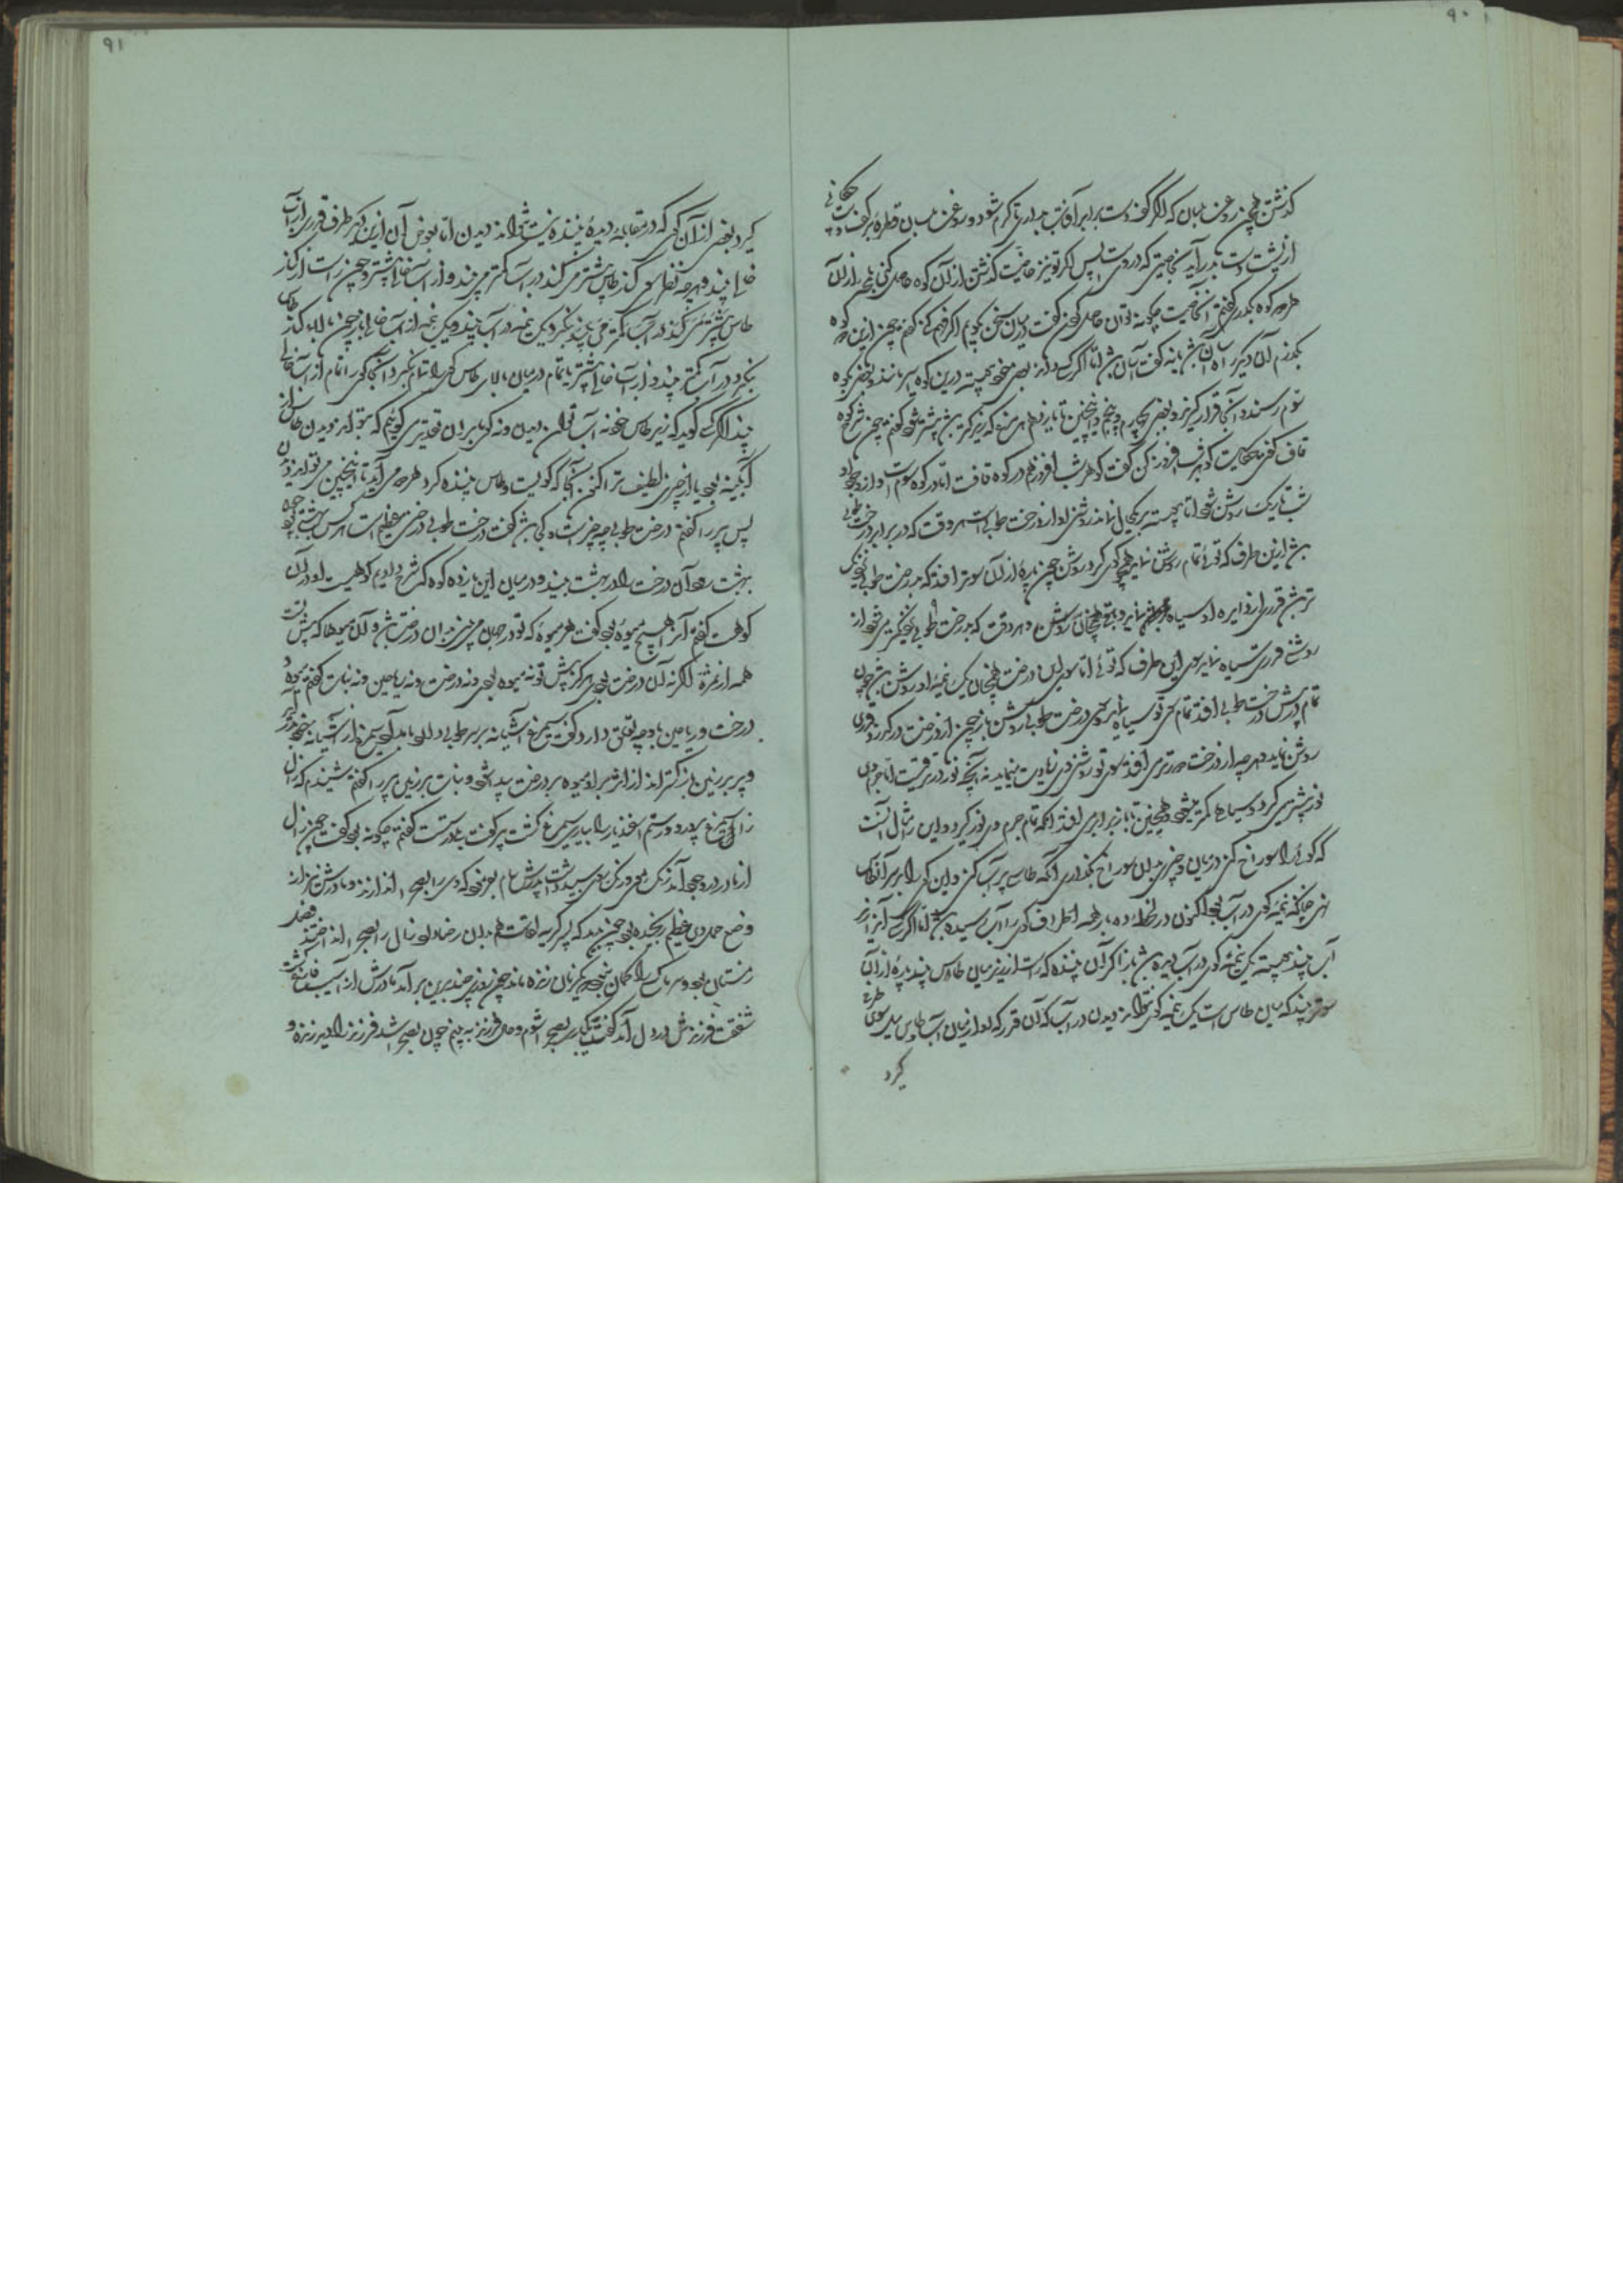 ۹۰
گذشتن همچون روغن بلسان که اگر کف دست برابر آفتاب بداری تا گرم شود و روغن بلسان قطره بر کف چکانی
از پشت دست بدر آید بخاصیتی که در وی است پس اگر تو نیز خاصیت گذشتن از آن کوه حاصل کنی بلمحه از آن
هر دو کوه بگذری گفتم آن خاصیت چگونه توان حاصل کردن گفت در میان سخن بگویم اگر فهم کنی گفتم چون ازین دو کوه
بگذرم آن دیگر را آسان باشد یا نه گفت آسان باشد اما اگر کسی داند بعضی خود پیوسته درین دو کوه اسیر مانند و بعضی بکوه
سوم رسند و آنجا قرار گیرند و بعضی بچهارم و پنجم و اینچنین تا یازدهم هر مرغ که زیرکتر باشد پیشتر شود گفتم چون شرح کوه
قاف کردی حکایت گوهر شب افروز کن گفت گوهر شب افروز هم در کوه قافست اما در کوه سوم است و از وجود او
شب تاریک روشن شود اما پیوسته بر یک حال نماند روشنی او از درخت طوبی است هر وقت که در برابر درخت طوبی
باشد ازین طرف که توئی تمام روشن نماید همچو گوی گرد روشن چون پاره از آن سوتر افتد که بدرخت طوبی نزدیک
تر باشد قدری از دایره او سیاه نماید و باقی همچنان روشن و هر وقت که بدرخت طوبی نزدیکتر می شود از
روشنی قدری سیاه نماید سوی این طرف که توئی اما سوی درخت طوبی همچنان یک نیمه او روشن باشد چون
تمام در پیش درخت طوبی افتد تمام سوی تو سیاه نماید و سوی درخت طوبی روشن باز چون از درخت درگذرد قدری
روشن نماید و هر چه از درخت دورتر می افتد سوی تو روشنی وی زیادت مینماید نه آنچه نور در ترقیست اما جرم وی
نور بیشتر میگیرد و سیاهی کمتر میشود و همچنین تا باز برابر می افتد آنگه تمام جرم وی نور گیرد و این را مثال آنست
که گوئی را سوراخ کنی در میان و چیزی بدان سوراخ بگذرانی آنگه طاسی پر آب کنی و این گوی را بر سر آن طاس
نهی چنانکه نیمه گوی در آب بود اکنون در لحظه ده بار همه اطراف گوی را آب رسیده باشد اما اگر کسی آنرا از زیر
آب بیند پیوسته یک نیمه گوی در آب دیده باشد باز اگر آن بیننده که راست از زیر میان طاس بیند پاره از آن
سوتر بیند که میان طاس است یک نیمه گوی نتواند دیدن در آب که آن قدر که او از میان آب طاس میل سوی طرفی
گیرد
۹۱
گیرد بعضی از آن گوی که در مقابله دیده بیننده نیست نتواند دیدن اما بعوض آن ازین دیگر طرف قدری از آب
خالی بیند و هر چه نظر سوی کنار طاس بیشتر می کند در آب کمتر می بیند و از آب خالی بیشتر و چون راست از کنار
طاس نگرد یک نیمه در آب بیند و یک نیمه از آب خالی باز چون بالای کنار طاس
نگرد در آب کمتر بیند و از آب خالی بیشتر تا تمام در میان بالای طاس گوی را تمام بنگرد آنجا گوی را تمام از آب خالی
بیند اگر کسی گوید که زیر طاس خود نه آب توان دیدن و نه گوی ما بدان تقدیر می گوئیم که بتواند دیدن طاس از
آبگینه بود یا از چیزی لطیف تر اکنون آنجا که گوئیست و طاس بیننده گرد هر دو می آید تا اینچنین می تواند دیدن
پس پیر را گفتم درخت طوبی چه چیز است و کجا باشد گفت درخت طوبی درختی عظیم است هر کس بهشتی بود چون
بهشت رود آن درخت را در بهشت بیند و در میان این یازده کوه که شرح دادیم کوهیست او در آن
کوهست گفتم آنرا هیچ میوه بود گفت هر میوه که تو در جهان می بینی بدان درخت باشد و آن میوها که پیش تست
همه از ثمره اوست اگر نه آن درخت بودی هرگز پیش تو نه میوه بودی و نه درخت و نه ریاحین و نه نبات گفتم میوه و
درخت و ریاحین با او چه تعلق دارد گفت سیمرغ آشیانه بر سر طوبی دارد بامداد سیمرغ از آشیانه خود بدر آید
و پر بر زمین باز گستراند از اثر پر او میوه بر درخت پیدا شود و نبات بر زمین پیر را گفتم شنیدم که زال
زال را سیمرغ پرورد و رستم اسفندیار را بیاری سیمرغ کشت پیر گفت بلی درستست گفتم چگونه بود گفت چون زال
از مادر در وجود آمد رنگ موی و رنگ روی سپید داشت پدرش سام بفرمود که وی را بصحرا اندازند و مادرش نیز از
وضع حمل وی عظیم رنجیده بود چون بدید که پسر کریه لقاست هم بدان رضا داد زال را بصحرا انداختند فصل
زمستان بود و سرما کس را گمان نبود که یک زمان زنده ماند چون روزی چند برین برآمد مادرش از آسیب فارغ گشت
شفقت فرزندش در دل آمد گفت یکبار بصحرا شوم و حال فرزند ببینم چون بصحرا شد فرزند را دید زنده و